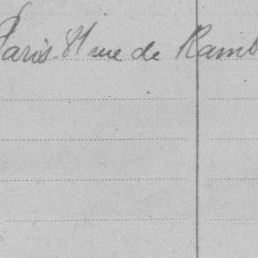 Paris 81 rue de Ramb